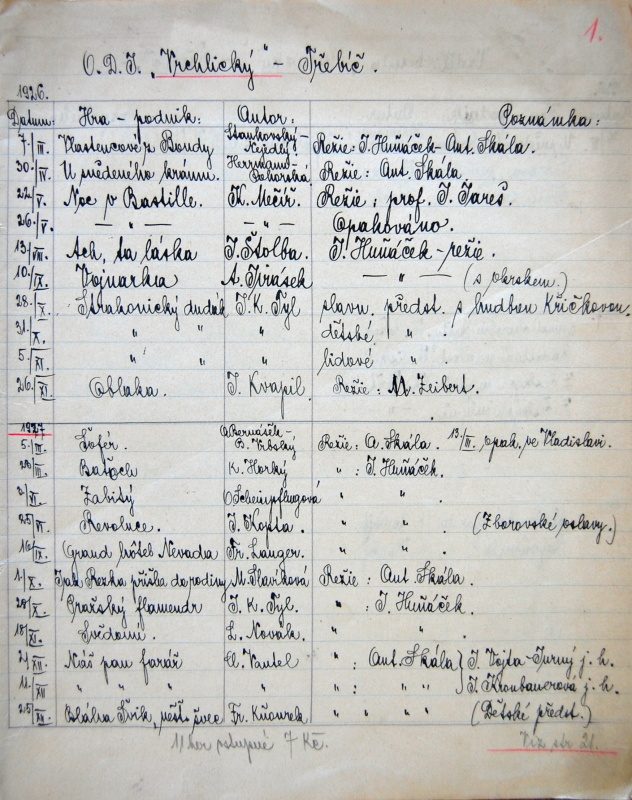 1.
O.D.J. „Vrchlický" – Třebíč.
1926.
Datum: Hra – podnik: Autor: Poznámka:
7./III. Vlastencové z Boudy Stankovský-Nejedlý Režie: J. Huňáček – Ant. Skála.
30./IV. U snědeného krámu. Herrmann- Režie: Ant. Skála.
22./V. Noc v Bastille. K. Mečíř. Režie: prof. J. Jareš.
26./V. — " — — " — Opakováno.
13./VIII. Ach, ta láska J. Štolba. J. Huňáček – režie.
10./IX. Vojnarka A. Jirásek — " — (s okrskem.)
28./X. Strakonický dudák J. K. Tyl slavn. předst. s hudbou Křičkovou.
31./X. " " " dětské " .
5./XI. " " " lidové " .
26./XI. Oblaka. J. Kvapil. Režie: M. Zeibert.
1927
5./III. Šofér. O. Bernášek – B. Vrbský Režie: A. Skála. 13./III. opak. ve Vladislavi.
20/III. K. Horký " : J. Huňáček.
2/VI. Zabitý O Scheinpflugová " " .
25/VI. Revoluce. J. Kopta. " " . (Zborovské oslavy.)
16/IX. Grand hôtel Nevada Fr. Langer. " " .
1./X. Jak Rezka přišla do rodiny M. Slavíková Režie: Ant. Skála.
28/X. Pražský flamendr J. K. Tyl. " : J. Huňáček.
18/XI. Svědomí. L. Novák. " " .
2/XII Náš pan farář Vautel " : Ant. Skála } J. Vojta-Jurný j. h.
11./XII. " " " " " : " " } J. Kroubauerová j. h.
25/XII. švec Fr. Kňourek. " " " " (Dětské předst.)
11 her 7 Kč.
Viz str 21.